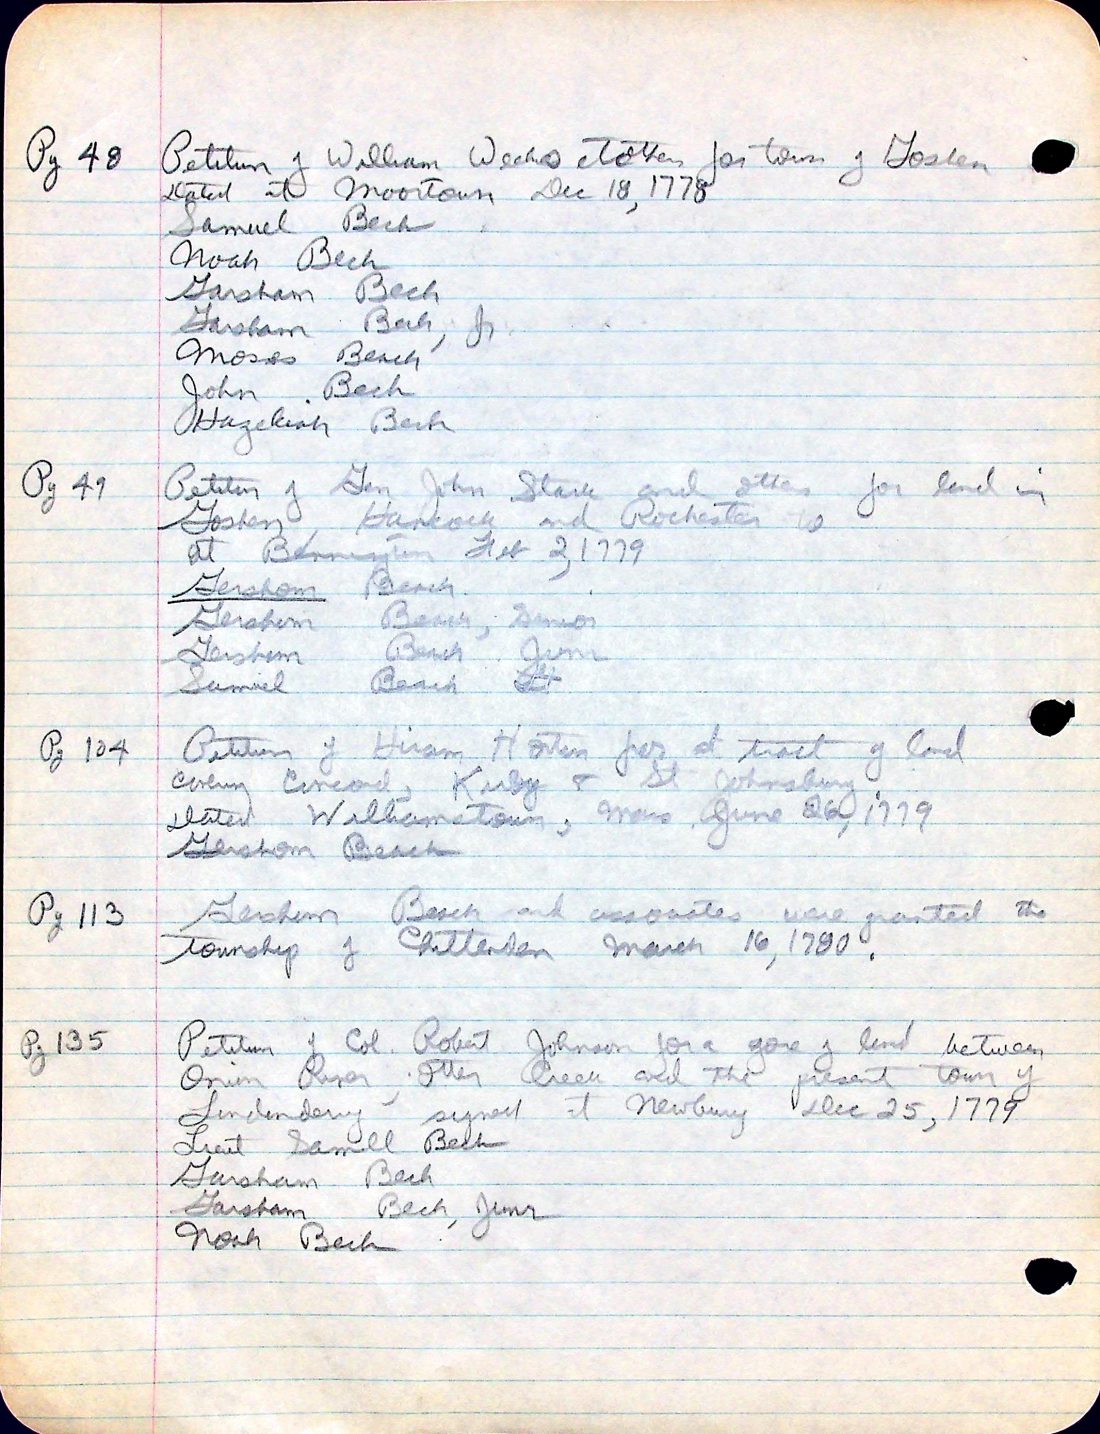 Pg 48 Petition of William Weeks et others for town of Goshen
dated at Moortown Dec 18, 1778
Samuel Bech
Noah Bech
Garsham Bech
Garsham Bech, Jr.
Moses Beach
John Bech
Hazekiah Bech
Pg 49 Petition of Gen John Stark and others for land in
Goshen, Hancock and Rochester
at Bennington Feb 2, 1779
Gershom Beach
Gershom Beach, Senior
Gershom Beach Junr
Samuel Beach
Pg 104 Petition of Hiram Horton for a tract of land
covering Concord, Kirby & St Johnsbury
dated Williamstown, Mass June 26, 1779
Gershom Beach
Pg 113 Gershom Beach and associates were granted the
township of Chittenden March 16, 1780.
Pg 135 Petition of Col. Robert Johnson for a gore of land between
Onion River, Otter Creek and the present town of
Londonderry, signed at Newbury Dec 25, 1779
Lieut Samll Bech
Garsham Bech
Garsham Bech, Junr
Noah Bech